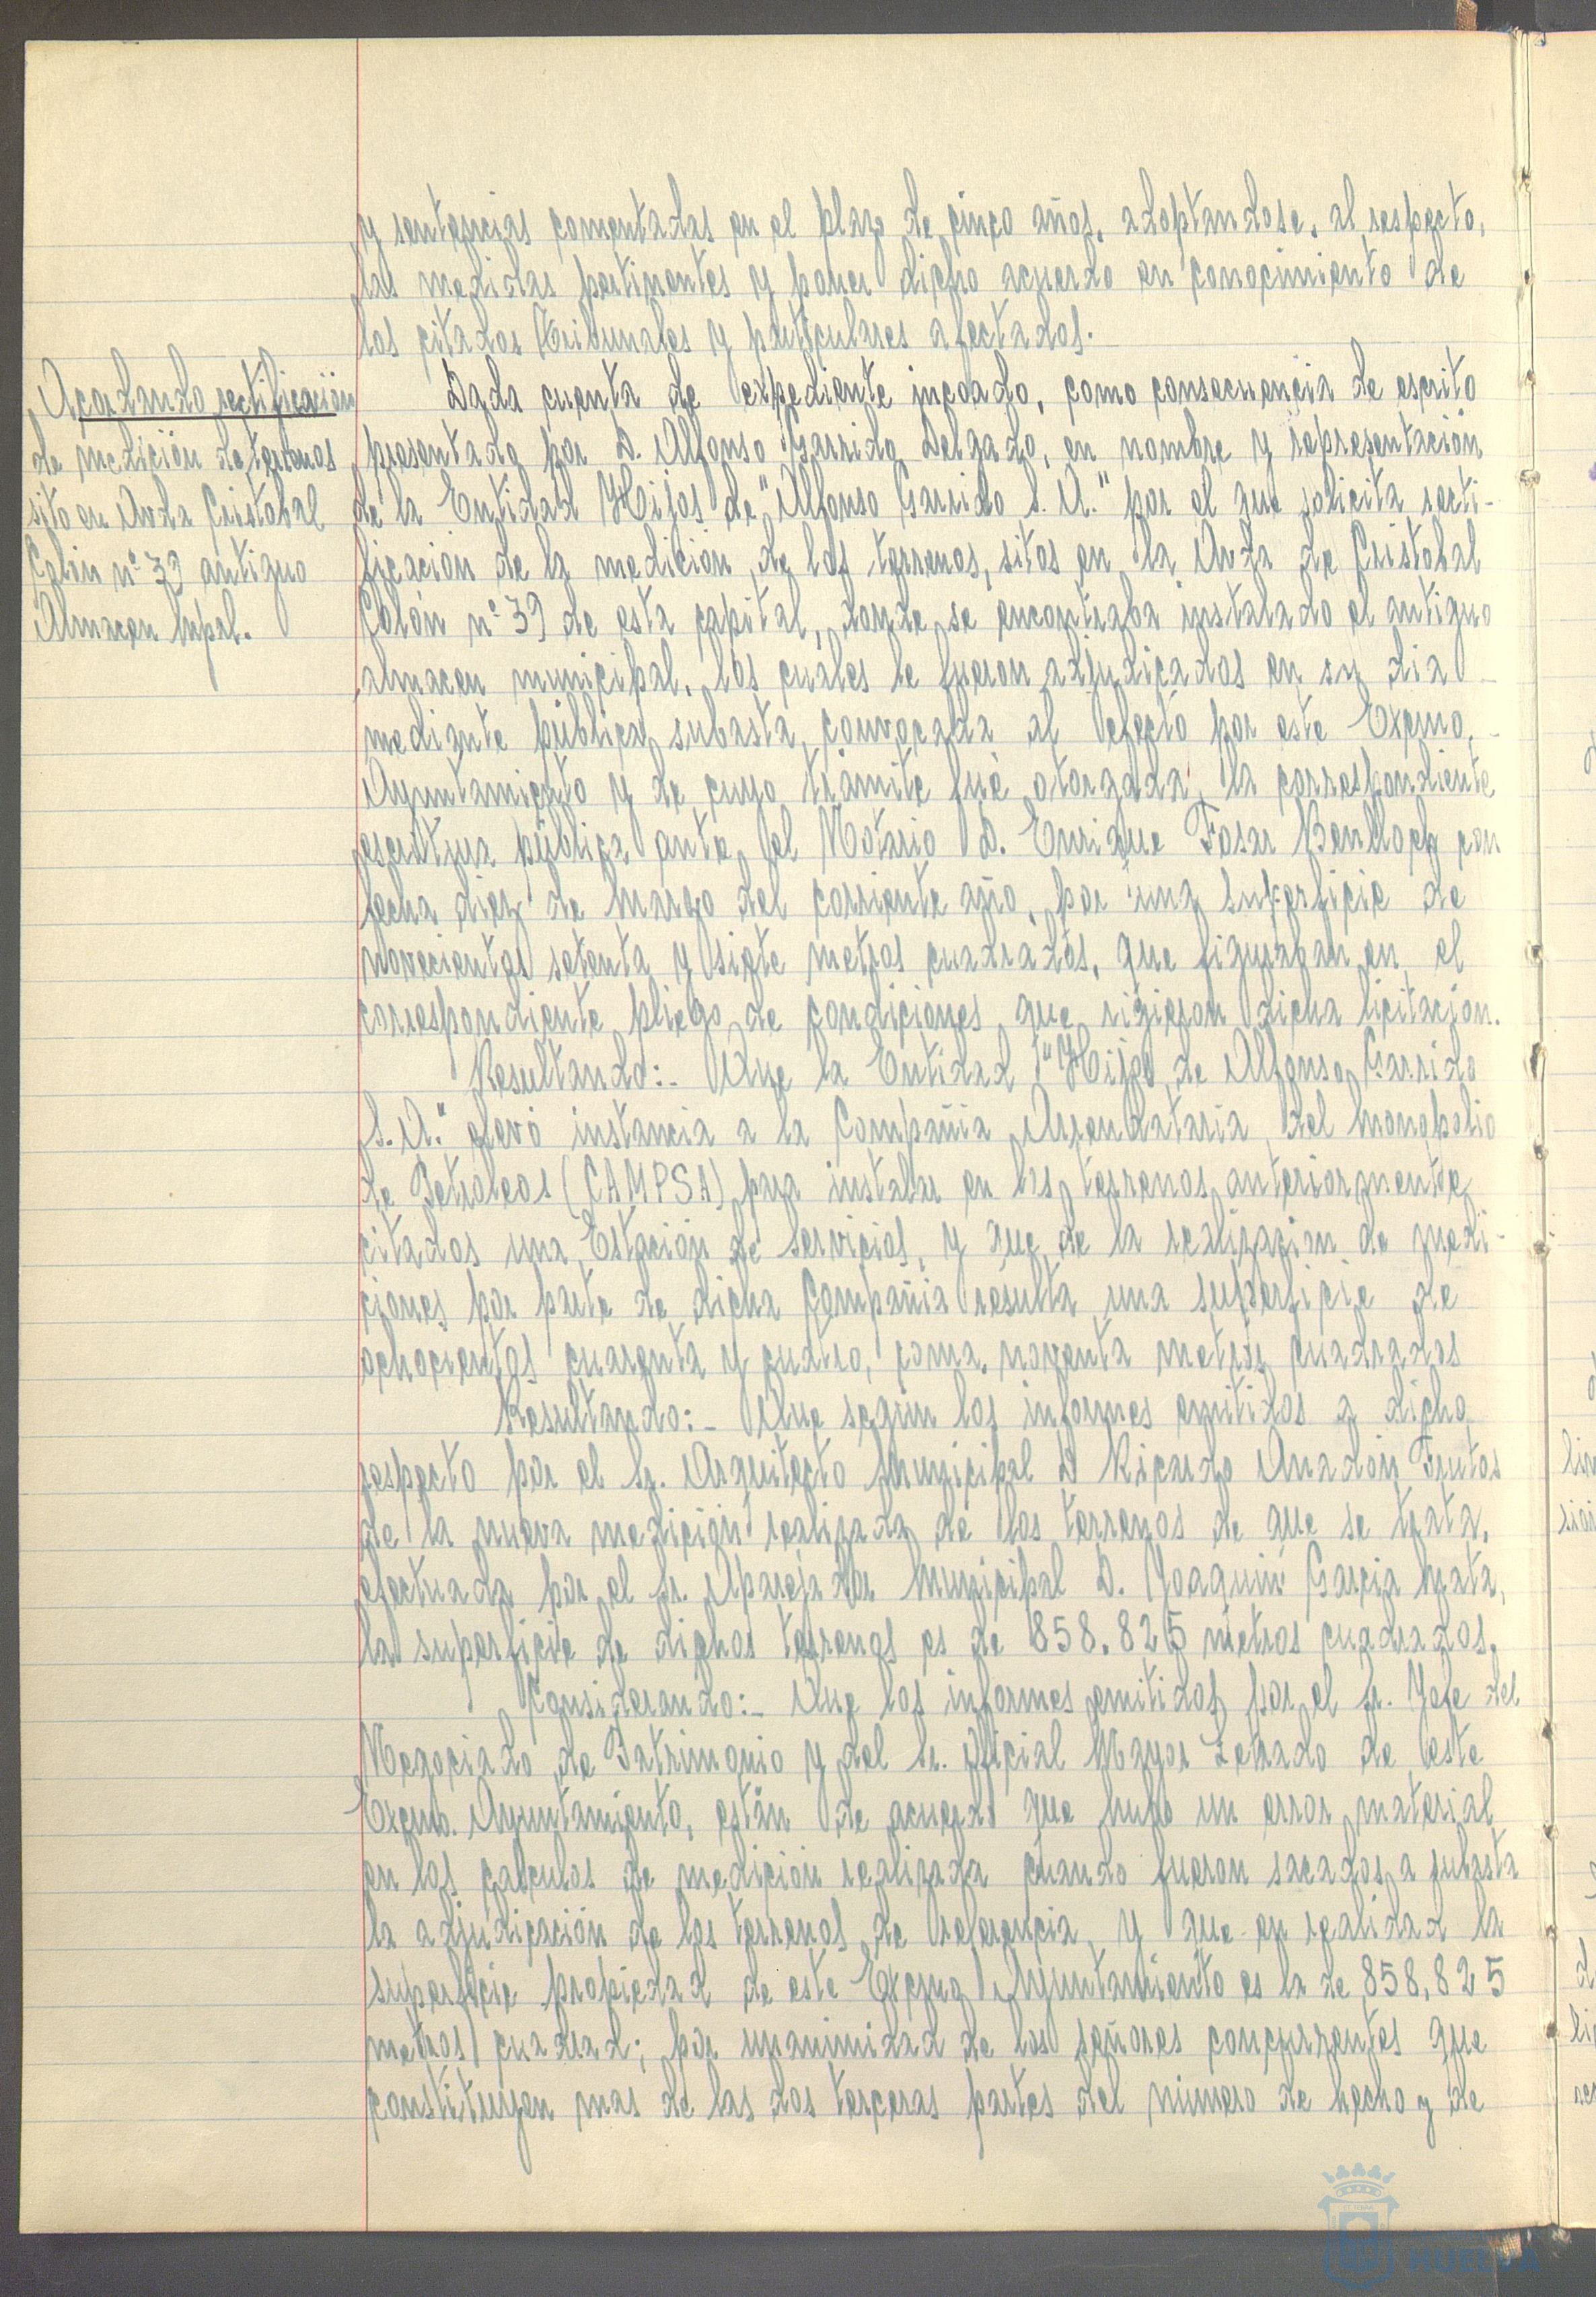 y sentencias comentadas en el plazo de cinco años, adoptandose, al respecto,
las medidas pertinentes y poner dicho acuerdo en conocimiento de
los citados Tribunales y particulares afectados.
Acordando rectificación
de medición de terrenos
sito en Avda Cristobal
Colón nº 39 antiguo
Almacen Mpal.
Dada cuenta de expediente incoado, como consecuencia de escrito
presentado por D. Alfonso Garrido Delgado, en nombre y representación
de la Entidad Hijos de "Alfonso Garrido S.A." por el que solicita recti-
ficación de la medición de los terrenos, sitos en la Avda de Cristobal
Colón nº 39 de esta capital, donde se encontraba instalado el antiguo
almacen municipal, los cuáles le fueron adjudicados en su dia
mediante pública subasta, convocada al efecto por este Excmo.
Ayuntamiento y de cuyo trámite fué otorgada la correspondiente
escritura pública ante el Notario D. Enrique Fosar Benlloch con
fecha diez de Marzo del corriente año, por una superficie de
novecientos setenta y siete metros cuadrados, que figuraban en el
correspondiente pliego de condiciones que rigieron dicha licitación.
Resultando:- Que la Entidad "Hijos de Alfonso Garrido
S.A." elevó instancia a la Compañia Arrendataria del Monopolio
de Petroleos (CAMPSA) para instalar en los terrenos anteriormente
citados una Estación de Servicios, y que de la realización de medi-
ciones por parte de dicha Compañia resulta una superficie de
ochocientos cuarenta y cuatro, coma, noventa metros cuadrados
Resultando:- Que según los informes emitidos a dicho
respecto por el Sr. Arquitecto Municipal D Ricardo Anadón Frutos
de la nueva medición realizada de los terrenos de que se trata,
efectuada por el Sr. Aparejador Municipal D. Joaquin Garcia Mata,
la superficie de dichos terrenos es de 858.825 metros cuadrados.
Considerando:- Que los informes emitidos por el Sr. Jefe del
Negociado de Patrimonio y del Sr. Oficial Mayor Letrado de este
Excmo. Ayuntamiento, están de acuerdo que hubo un error material
en los calculos de medición realizada cuando fueron sacados a subasta
la adjudicación de los terrenos de referencia y que en realidad la
superficie propiedad de este Excmo Ayuntamiento es la de 858,825
metros cuadrad; por unanimidad de los señores concurrentes que
constituyen mas de las dos terceras partes del número de hecho y de
HUELVA